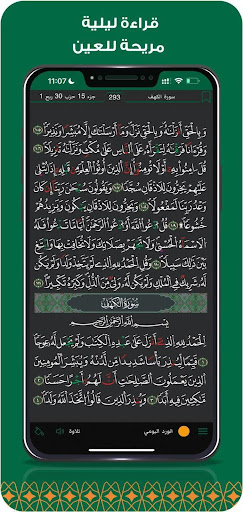 قراءة ليلية
مريحة للعين
11:07
سورة الكهف
293
جزء 15 حزب 30 ربع 1
وَبِٱلْحَقِّ أَنزَلْنَٰهُ وَبِٱلْحَقِّ نَزَلَ وَمَآ أَرْسَلْنَٰكَ إِلَّا مُبَشِّرًا وَنَذِيرًا ١٠٥
وَقُرْءَانًا فَرَقْنَٰهُ لِتَقْرَأَهُۥ عَلَى ٱلنَّاسِ عَلَىٰ مُكْثٍ وَنَزَّلْنَٰهُ تَنزِيلًا ١٠٦
قُلْ ءَامِنُوا۟ بِهِۦٓ أَوْ لَا تُؤْمِنُوٓا۟ إِنَّ ٱلَّذِينَ أُوتُوا۟ ٱلْعِلْمَ مِن قَبْلِهِۦٓ إِذَا يُتْلَىٰ
عَلَيْهِمْ يَخِرُّونَ لِلْأَذْقَانِ سُجَّدًا ١٠٧ وَيَقُولُونَ سُبْحَٰنَ رَبِّنَآ إِن كَانَ
وَعْدُ رَبِّنَا لَمَفْعُولًا ١٠٨ وَيَخِرُّونَ لِلْأَذْقَانِ يَبْكُونَ وَيَزِيدُهُمْ
خُشُوعًا ١٠٩ قُلِ ٱدْعُوا۟ ٱللَّهَ أَوِ ٱدْعُوا۟ ٱلرَّحْمَٰنَ أَيًّا مَّا تَدْعُوا۟ فَلَهُ
ٱلْأَسْمَآءُ ٱلْحُسْنَىٰ وَلَا تَجْهَرْ بِصَلَاتِكَ وَلَا تُخَافِتْ بِهَا وَٱبْتَغِ
بَيْنَ ذَٰلِكَ سَبِيلًا ١١٠ وَقُلِ ٱلْحَمْدُ لِلَّهِ ٱلَّذِى لَمْ يَتَّخِذْ وَلَدًا وَلَمْ يَكُن
لَّهُۥ شَرِيكٌ فِى ٱلْمُلْكِ وَلَمْ يَكُن لَّهُۥ وَلِىٌّ مِّنَ ٱلذُّلِّ وَكَبِّرْهُ تَكْبِيرًۢا ١١١
سُورَةُ الكَهْفِ
بِسْمِ ٱللَّهِ ٱلرَّحْمَٰنِ ٱلرَّحِيمِ
ٱلْحَمْدُ لِلَّهِ ٱلَّذِىٓ أَنزَلَ عَلَىٰ عَبْدِهِ ٱلْكِتَٰبَ وَلَمْ يَجْعَل لَّهُۥ عِوَجَا ١
قَيِّمًا لِّيُنذِرَ بَأْسًا شَدِيدًا مِّن لَّدُنْهُ وَيُبَشِّرَ ٱلْمُؤْمِنِينَ
ٱلَّذِينَ يَعْمَلُونَ ٱلصَّٰلِحَٰتِ أَنَّ لَهُمْ أَجْرًا حَسَنًا ٢
مَّٰكِثِينَ فِيهِ أَبَدًا ٣ وَيُنذِرَ ٱلَّذِينَ قَالُوا۟ ٱتَّخَذَ ٱللَّهُ وَلَدًا ٤
الورد اليومي
تلاوة